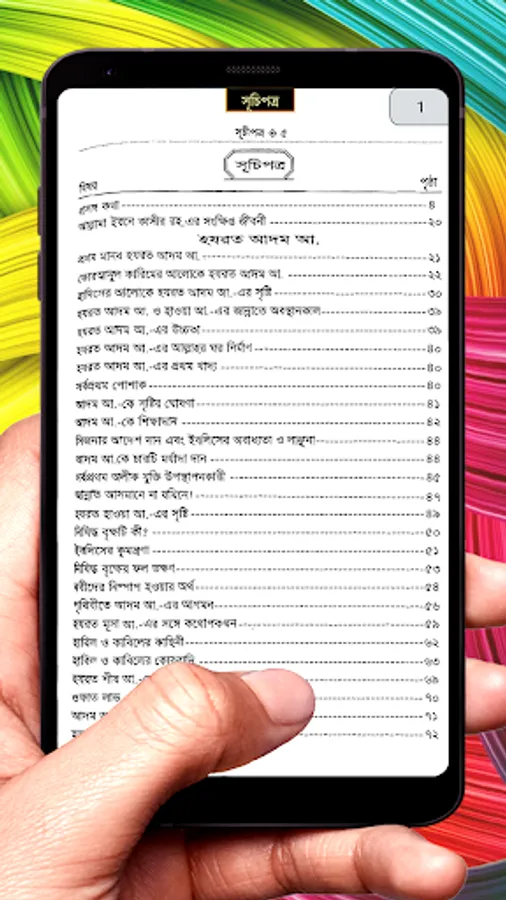 সূচিপত্র
1
সূচীপত্র ❖ ৫
সূচিপত্র
বিষয় পৃষ্ঠা
প্রসঙ্গ কথা ৪
আল্লামা ইবনে কাসীর রহ.এর সংক্ষিপ্ত জীবনী ২০
হযরত আদম আ.
প্রথম মানব হযরত আদম আ. ২১
কোরআনুল কারিমের আলোকে হযরত আদম আ. ২২
হাদিসের আলোকে হযরত আদম আ.-এর সৃষ্টি ৩০
হযরত আদম আ. ও হাওয়া আ.-এর জান্নাতে অবস্থানকাল ৩৯
হযরত আদম আ.-এর উচ্চতা ৩৯
হযরত আদম আ.-এর আল্লাহর ঘর নির্মাণ ৪০
হযরত আদম আ.-এর প্রথম খাদ্য ৪০
সর্বপ্রথম পোশাক ৪০
আদম আ.-কে সৃষ্টির ঘোষণা ৪১
আদম আ.-কে শিক্ষাদান ৪২
সিজদার আদেশ দান এবং ইবলিসের অবাধ্যতা ও লাঞ্ছনা ৪৪
আদম আ.কে চারটি মর্যাদা দান ৪৪
সর্বপ্রথম অলীক যুক্তি উপস্থাপনকারী ৪৫
জান্নাত আসমানে না যমিনে! ৪৭
হযরত হাওয়া আ.-এর সৃষ্টি ৪৯
নিষিদ্ধ বৃক্ষটি কী? ৫০
ইবলিসের কুমন্ত্রণা ৫১
নিষিদ্ধ বৃক্ষের ফল ভক্ষণ ৫৩
নবীদের নিষ্পাপ হওয়ার অর্থ ৫৪
পৃথিবীতে আদম আ.-এর আগমন ৫৬
হযরত মূসা আ.-এর সঙ্গে কথোপকথন ৫৯
হাবিল ও কাবিলের কাহিনী ৬২
হাবিল ও কাবিলের কোরবানি ৬৩
হযরত শীস আ.- ৬৯
ওফাত লাভ ৭০
আদম অ ৭১
৭২